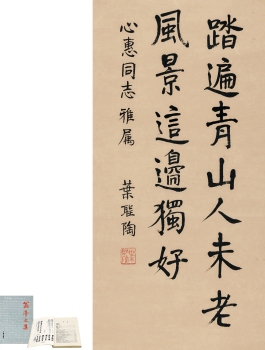 踏遍青山人未老
風景這邊獨好
心惠同志雅屬
葉聖陶